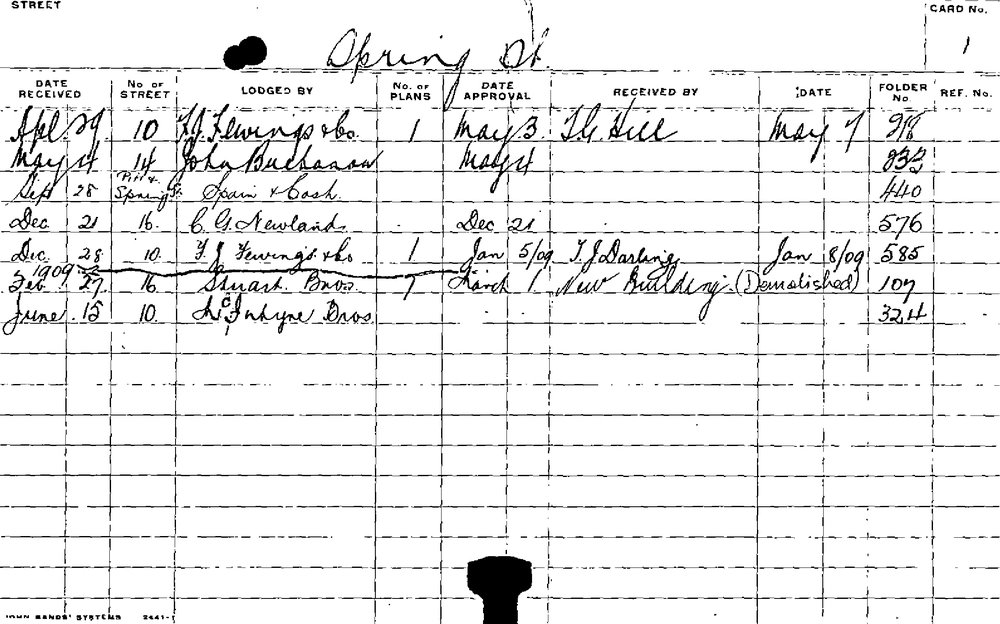 STREET
CARD No.
Spring St.
1
DATE RECEIVED No OF STREET LODGED BY No. OF PLANS DATE APPROVAL RECEIVED BY DATE FOLDER No. REF. No.
Apl 29 10 F.J. Fewings & Co. 1 May 3 T.G. Hill May 7
May 4 14 John Buchanan May 4 233
Pitt &
Sept 28 Spring St. Spain & Cosh. 440
Dec 21 16. C. G. Newland. Dec 21 576
Dec. 28 10. F. J. Fewings & Co 1 Jan 5/09 T. J Darling Jan 8/09 585
1909
Feb 27 16 Stuart Bros. 1 March 1 New Building (Demolished) 107
June 15 10. Bros. 324
JOHN SANDS' SYSTEMS 2441-1